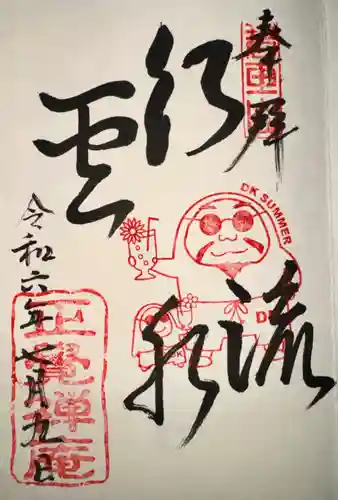 奉拝
行雲
流水
DK SUMMER
DK
令和六年七月九日
正覺禪庵